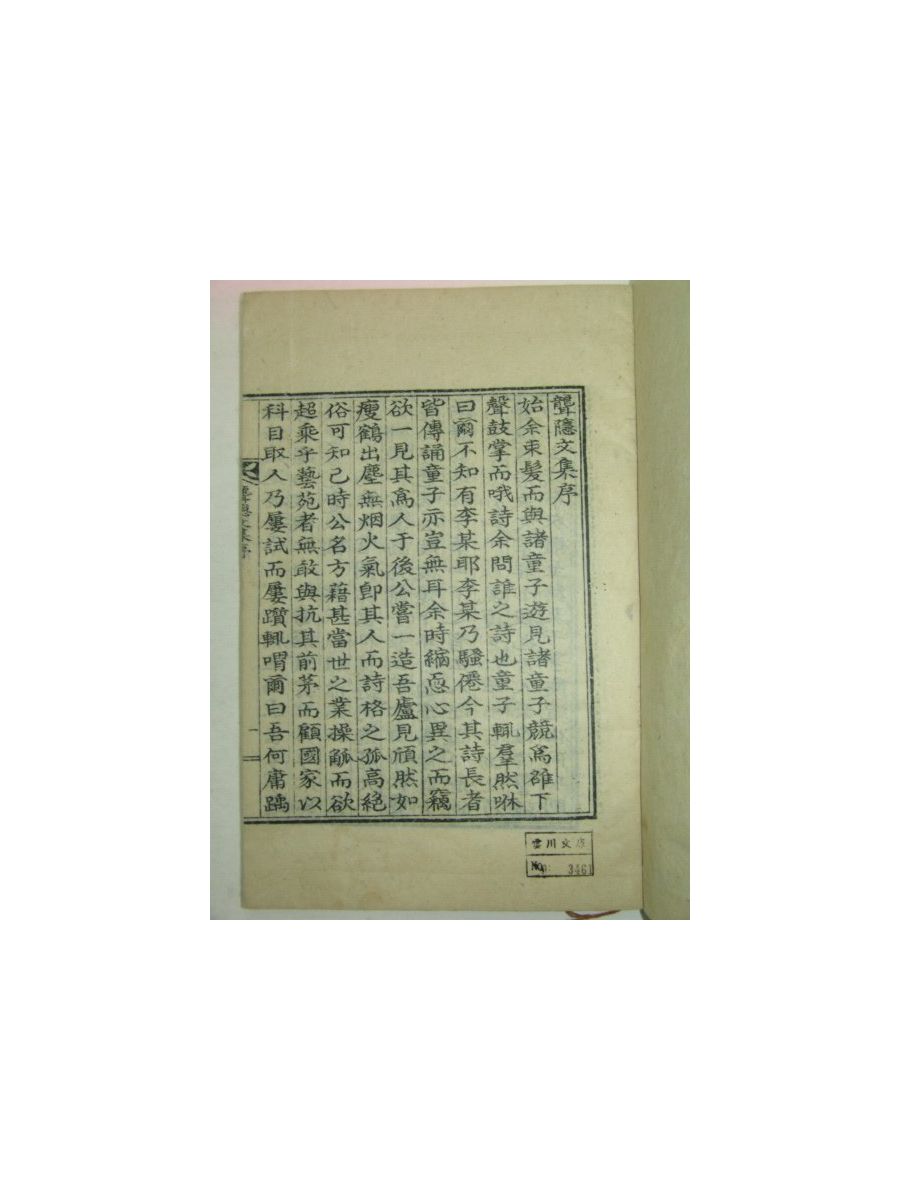 聾隱文集序
始余束髮而與諸童子遊見諸童子競爲碓下
聲鼓掌而哦詩余問誰之詩也童子輒羣然咻
曰爾不知有李某耶李某乃騷僊今其詩長者
皆傳誦童子亦豈無耳余時縮恧心異之而竊
欲一見其爲人于後公嘗一造吾廬見頎然如
瘦鶴出塵無烟火氣卽其人而詩格之孤高絕
俗可知已時公名方藉甚當世之業操觚而欲
超乘乎藝苑者無敢與抗其前茅而顧國家以
科目取人乃屢試而屢躓輒喟爾曰吾何庸踽
聾隱文集序
一
雲川文庫
No. 3461